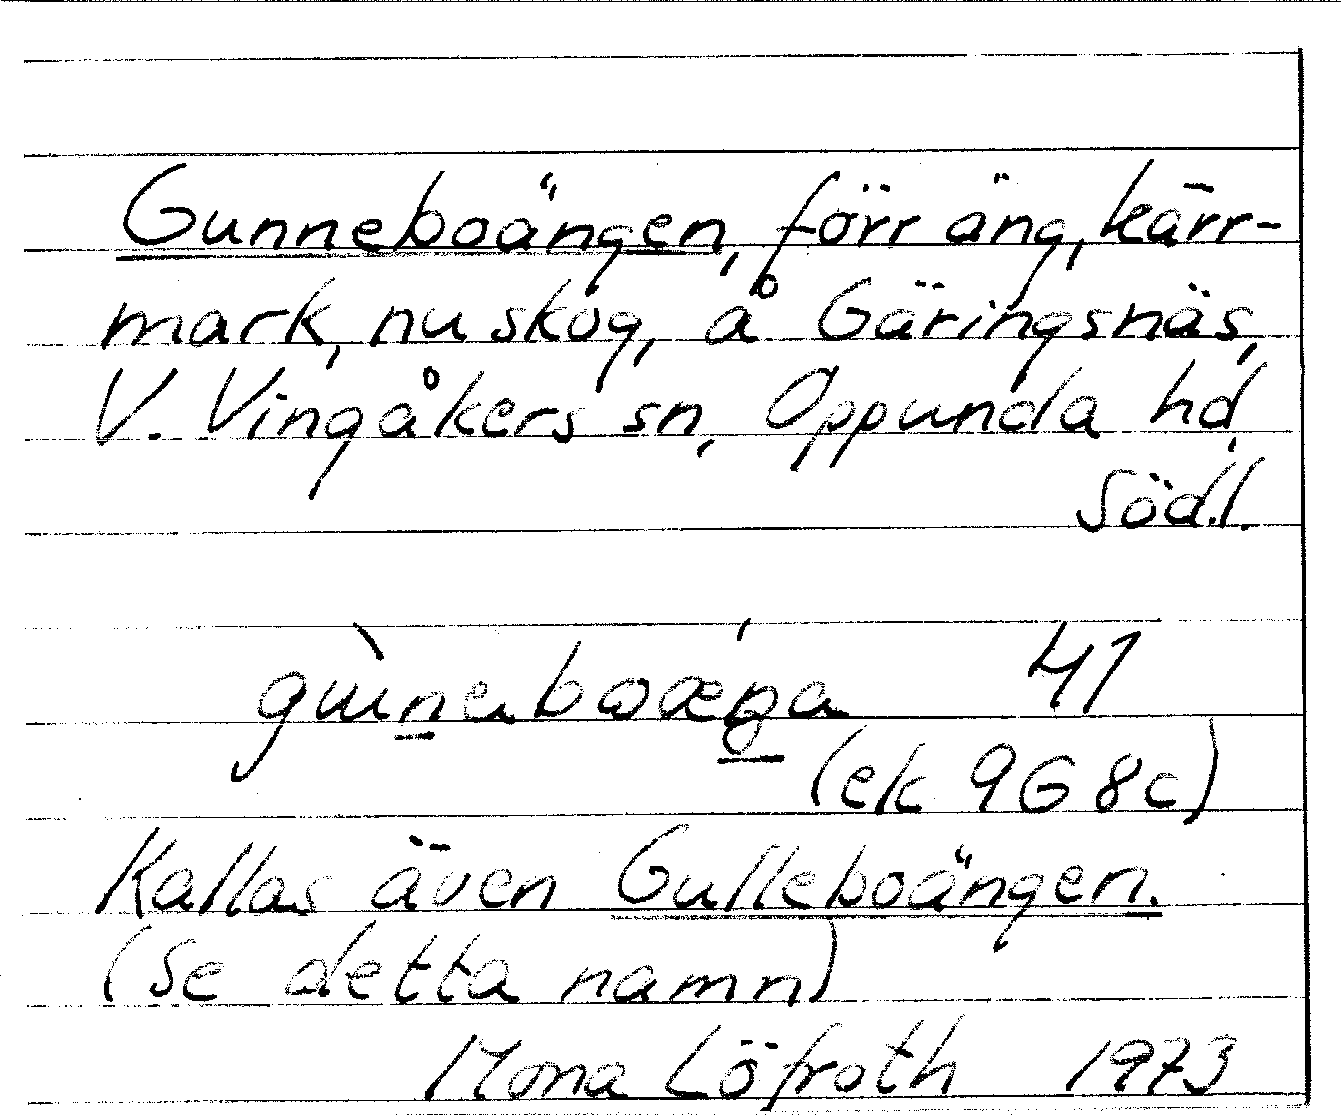 Gunneboängen, förr äng, kärr-
mark, nu skog, å Gäringsnäs,
V. Vingåkers sn, Oppunda hd,
Södl.
41
(ek 9G8c)
Kallas även Gulleboängen.
(Se detta namn)
Mona Löfroth 1973